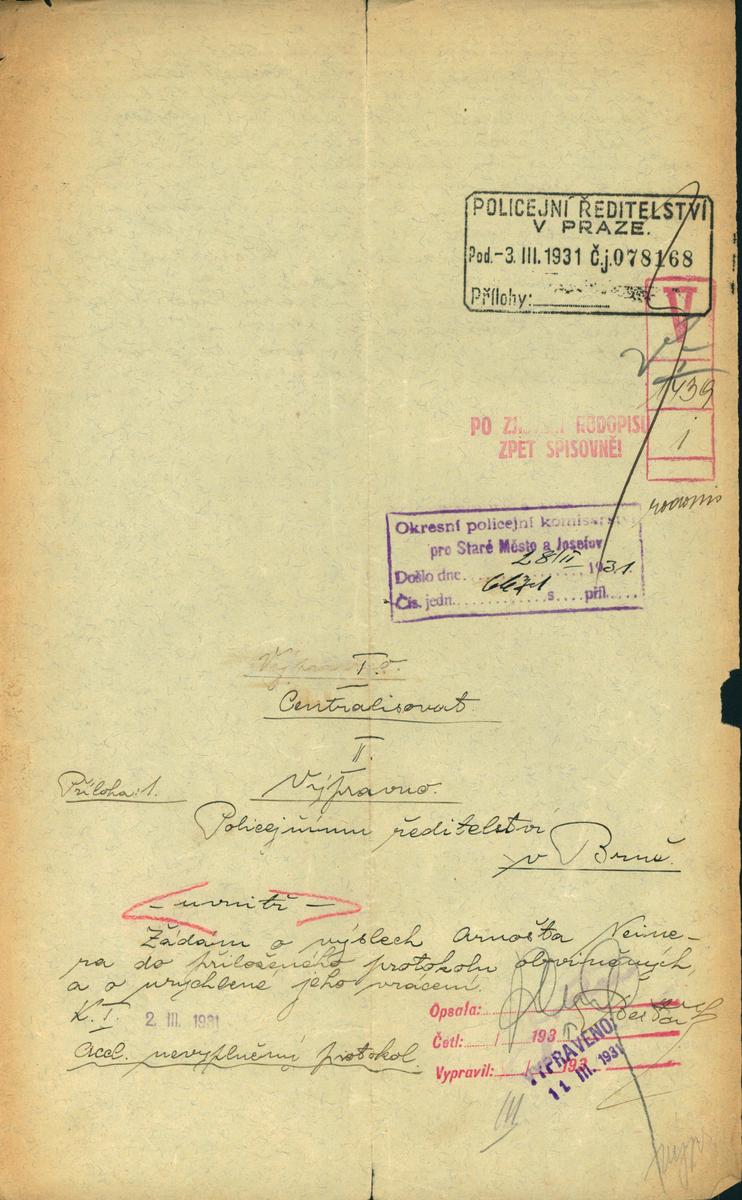 POLICEJNÍ ŘEDITELSTVÍ
V PRAZE.
Pod.-3. III. 1931 Č.j. 078168
Přílohy:
V
1439
PO RODOPISU
ZPĚT SPISOVNĚ!
1
Okresní policejní komisařství
pro Staré Město a Josefov
Došlo dne 28/II 1931.
Čís. jedn. s. příl.
I.
Centralisovat.
II.
Příloha: 1.
Výpravno.
Policejnímu ředitelství
v Brně.
- uvnitř -
Žádám o výslech Arnošta Neime-
ra do přiloženého protokolu obviněných,
a o urychlené jeho vrácení.
K. I.
2. III. 1931
Opsala:
Četl: / 193
Vypravil: / 193
VYPRAVENO:
11 III. 1931
Accl. nevyplněný protokol.